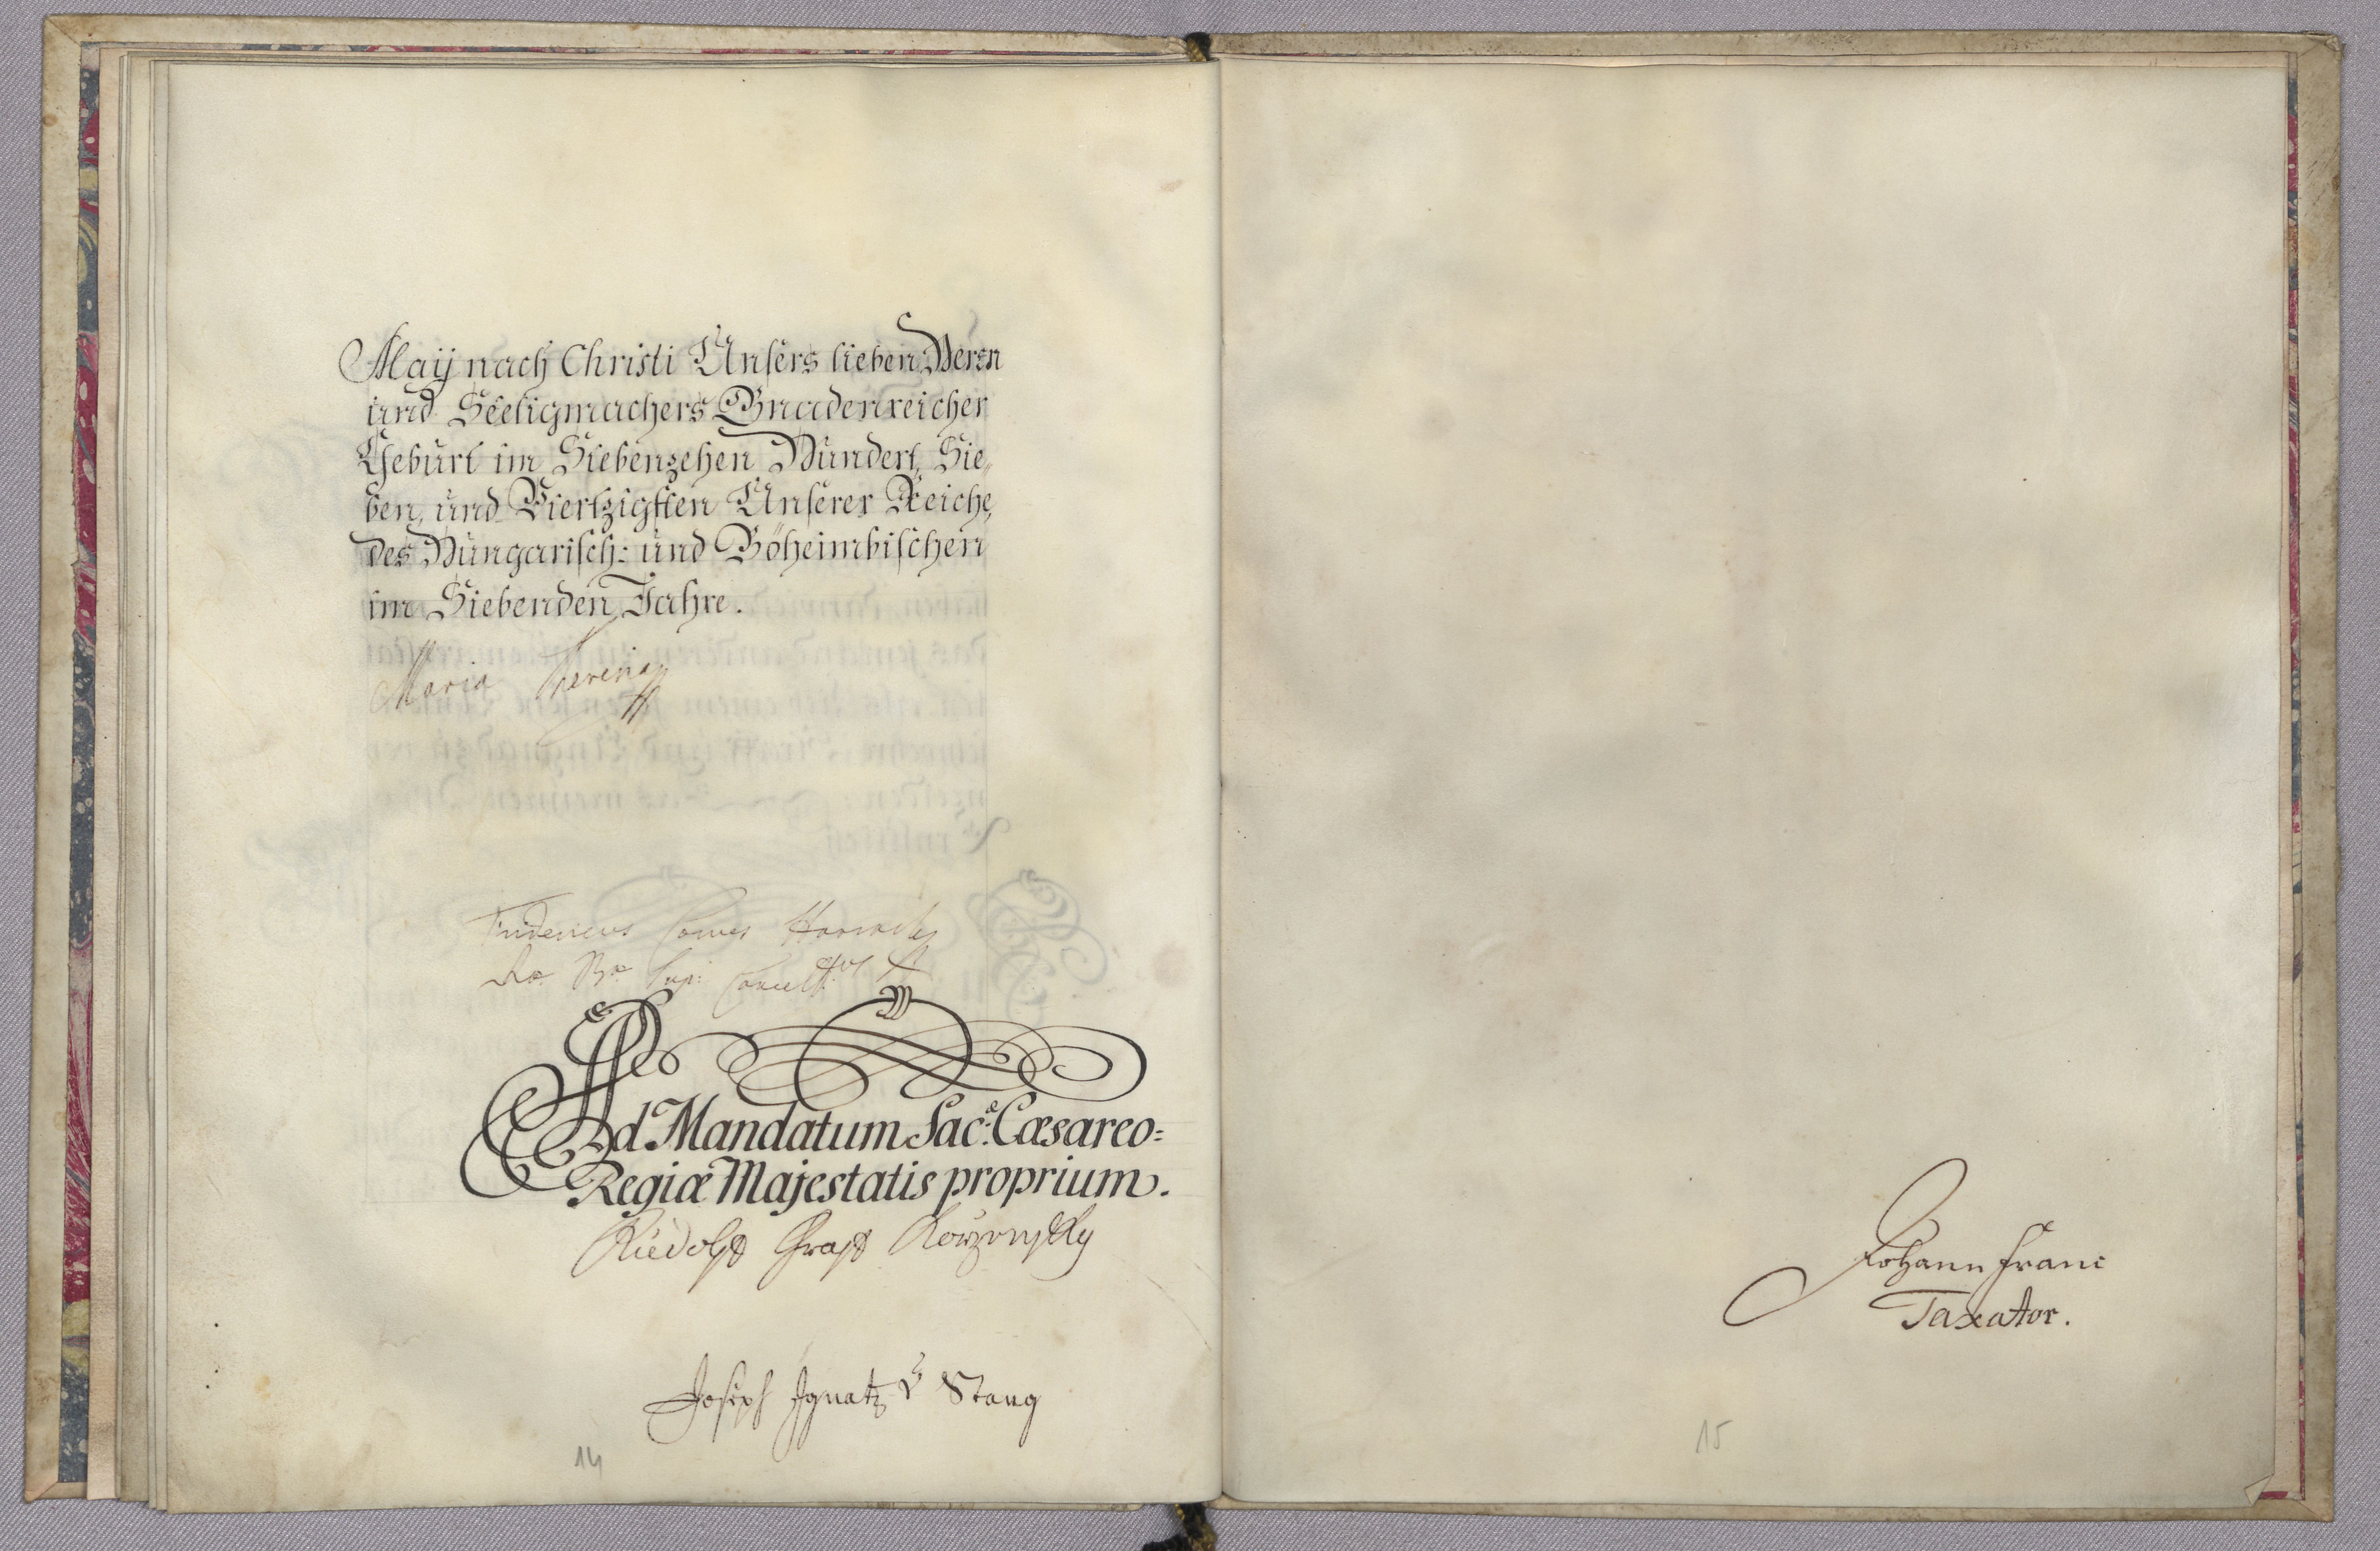 Maij nach Christi Unsers lieben Herrn
und Seeligmachers Gnadenreicher
Geburt im Siebenzehen Hundert, Sie„
ben, und Viertzigsten Unserer Reiche,
des Hungarisch: und Böheimbischen
im Siebenden Jahre.
Maria Theresia
Fridericus Comes Harrach
Rae. Bae. Sup: Cancell
Ad Mandatum Sac:ae Cæsareo=
Regiæ Majestatis proprium.
Rudolph Graff Korzensky
Joseph Ignatz Stang
14
Johann Franc
Taxator.
15